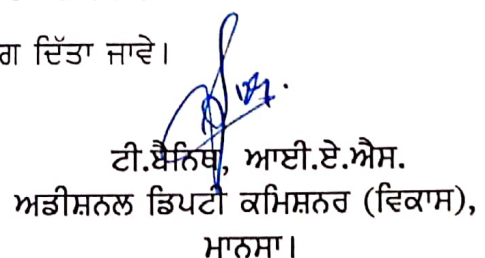 ਗ ਦਿੱਤਾ ਜਾਵੇ।
ਟੀ.ਬੈਨਿਥ, ਆਈ.ਏ.ਐਸ.
ਅਡੀਸ਼ਨਲ ਡਿਪਟੀ ਕਮਿਸ਼ਨਰ (ਵਿਕਾਸ),
ਮਾਨਸਾ।